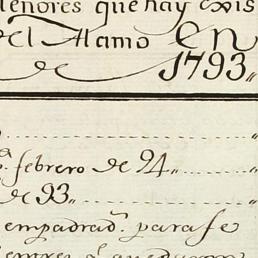 menores que hay exis
del Alamo en
de 1793„
„
febrero de 94„ „
de 93„ „
empadrad.ˢ para se